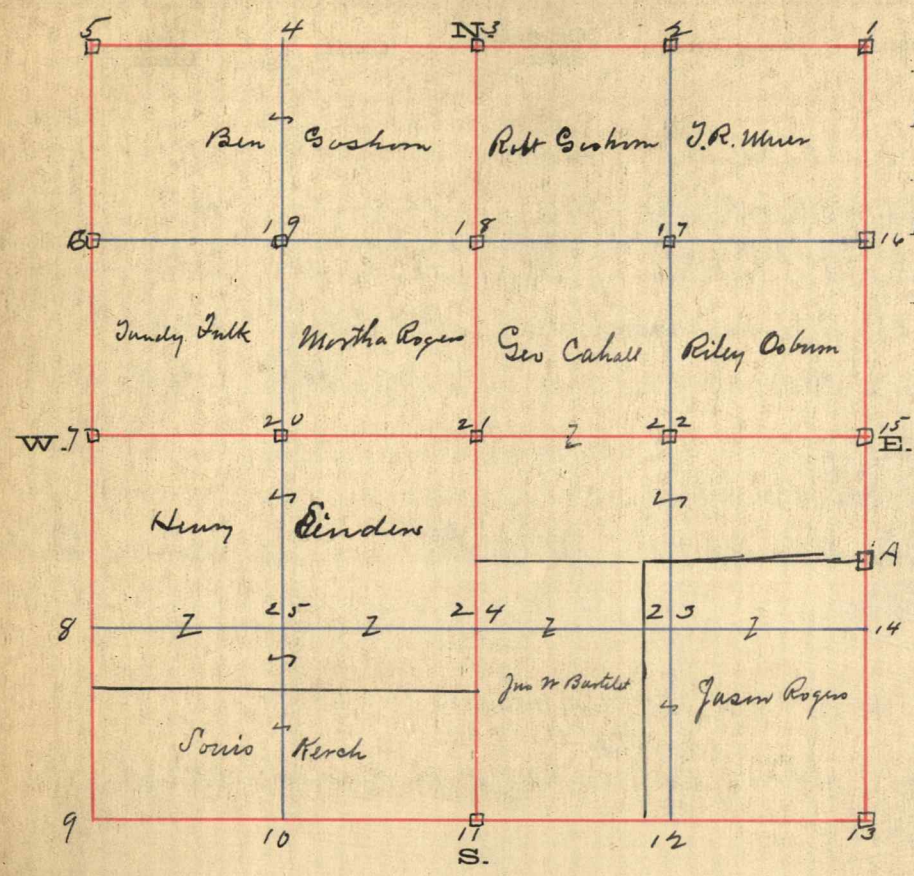 5 4 N. 3 2 1
Ben Goshorn Robt Goshorn J.R. Muir
6 19 18 17 16
Tandy Fulk Martha Rogers Geo Cahall Riley Osburn
W. 7 20 21 22 15 E.
Henry
A
8 25 24 23 14
Jno W Bartlet Jason Rogers
Louis Kerch
9 10 11 12 13
S.